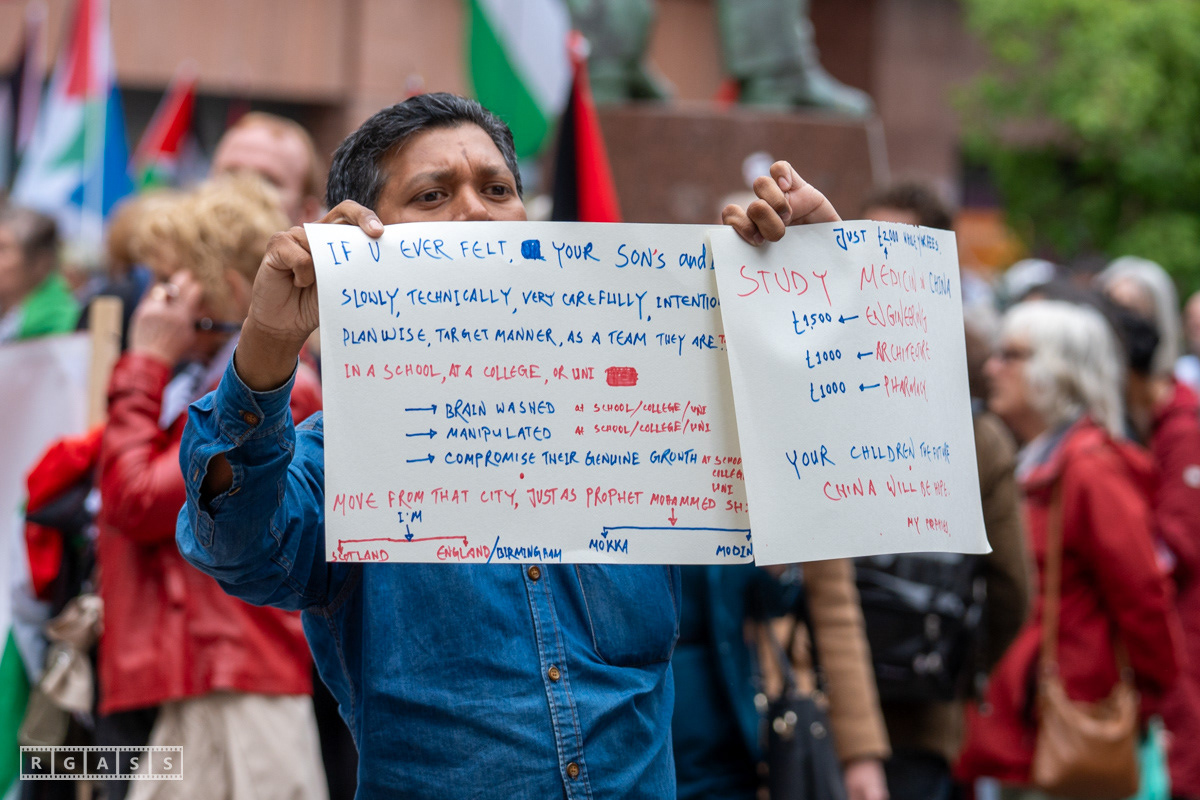 IF U EVER FELT, YOUR SON'S and
SLOWLY, TECHNICALLY, VERY CAREFULLY, INTENTIO
PLANWISE, TARGET MANNER, AS A TEAM THEY ARE
IN A SCHOOL, AT A COLLEGE, OR UNI
→ BRAIN WASHED at SCHOOL/COLLEGE/UNI
→ MANIPULATED at SCHOOL/COLLEGE/UNI
→ COMPROMISE THEIR GENUINE GROWTH AT SCHOO
COLLEGE
UNI
MOVE FROM THAT CITY, JUST AS PROPHET MOHAMMED SH
I'M
SCOTLAND ENGLAND/BIRMINGRAM
MOKKA MODIN
JUST £2,000
STUDY MEDICIN CHINA
£1,500 ← ENGINEERING
£1000 ← ARCHITECTURE
£1000 ← PHARMACY
YOUR CHILDREN THE FUTURE
CHINA WILL BE HOPE.
MY
RGASS